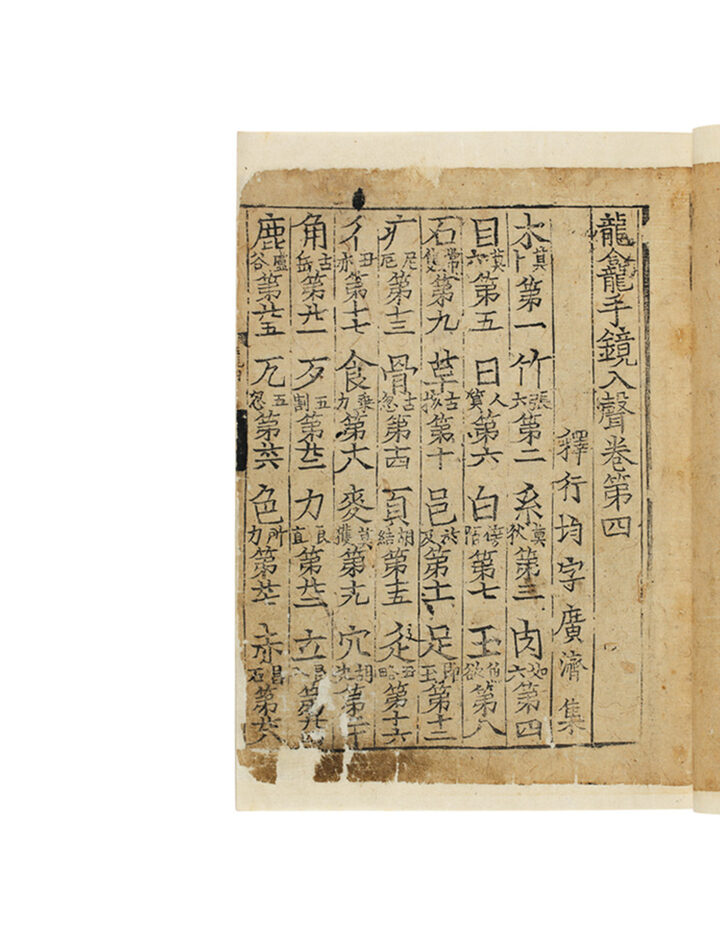 龍龕手鏡入聲卷第四
釋行均字廣濟集
木莫卜第一竹張六第二糸莫狄第三肉如六第四
目莫六第五日人質第六白傍陌第七玉魚欲第八
石常隻第九革古核第十邑於及第十一足即玉第十二
疒尼厄第十三骨古忽第十四頁胡結第十五辵丑略第十六
彳丑亦第十七食乘力第十八麥莫獲第十九穴胡決第二十
角古岳第廿一歹五割第廿二力良直第廿三立第廿四
鹿盧谷第廿五兀五忽第廿六色所力第廿七赤昌石第廿八